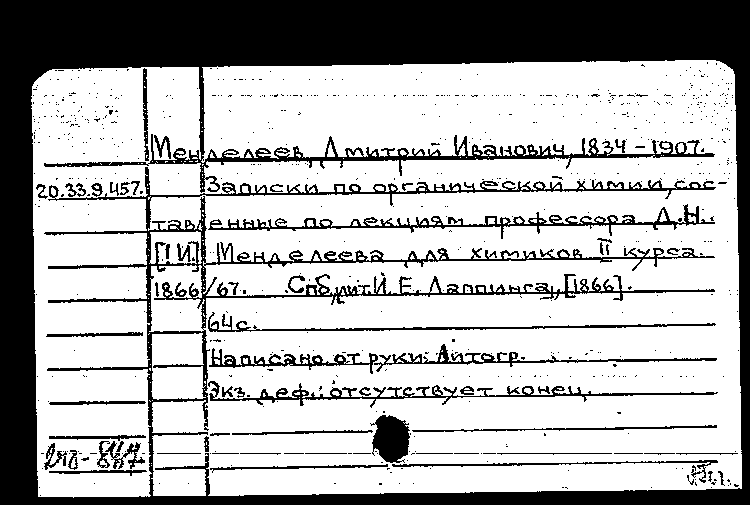 Менделеев, Дмитрий Иванович, 1834-1907.
20.33.9.457. Записки по органической химии, сос-
тавленные по лекциям профессора Д.Н.
[!И] Менделеева для химиков II курса.
1866/67. Спб, лит. И. Е. Лаппинга, [1866].
64 с.
Написано от руки. Литогр.
Экз. деф.: отсутствует конец.